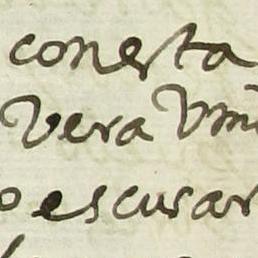 con esta
Vera Vmi
o escurar